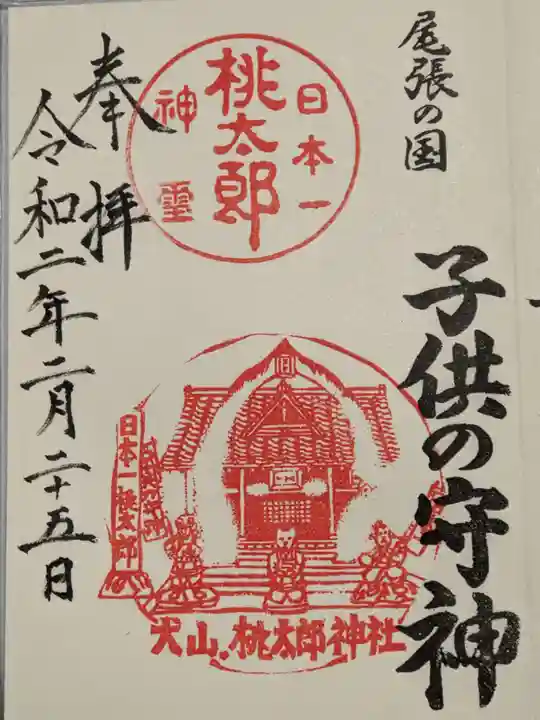 尾張の国
子供の守神
日本一
桃太郎
神霊
日本一桃太郎
犬山.桃太郎神社
奉拝
令和二年二月二十五日